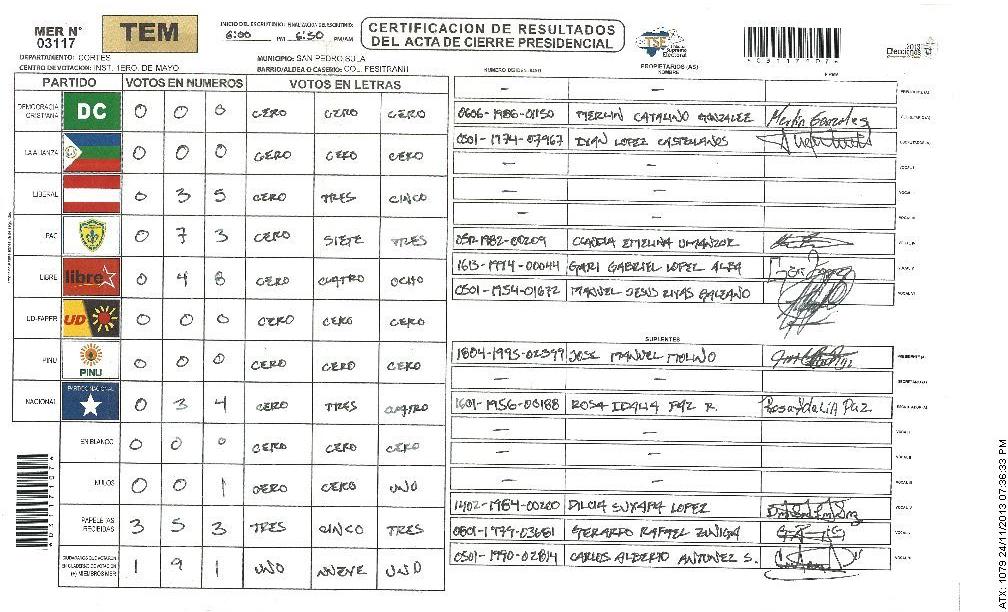 MER N° 03117
TEM
INICIO DEL ESCRUTINIO: FINALIZACIÓN DEL ESCRUTINIO:
6:00 PM 6:50 PM/AM
CERTIFICACION DE RESULTADOS
DEL ACTA DE CIERRE PRESIDENCIAL
TSE
Tribunal Supremo Electoral
2013
Elecciones
DEPARTAMENTO: CORTES
MUNICIPIO: SAN PEDRO SULA
CENTRO DE VOTACION: INST. 1ERO. DE MAYO
BARRIO/ALDEA O CASERIO: COL. FESITRANH
PROPIETARIOS (AS)
NOMBRE
FIRMA
PARTIDO VOTOS EN NUMEROS VOTOS EN LETRAS
DEMOCRACIA CRISTIANA DC 0 0 0 CERO CERO CERO
LA ALIANZA 0 0 0 CERO CERO CERO
LIBERAL 0 3 5 CERO TRES CINCO
PAC 0 7 3 CERO SIETE TRES
LIBRE libre 0 4 8 CERO CUATRO OCHO
UD-FAPER UD 0 0 0 CERO CERO CERO
PINU PINU 0 0 0 CERO CERO CERO
NACIONAL PARTIDO NACIONAL 0 3 4 CERO TRES CUATRO
EN BLANCO 0 0 0 CERO CERO CERO
NULOS 0 0 1 CERO CERO UNO
PAPELETAS RECIBIDAS 3 5 3 TRES CINCO TRES
CIUDADANOS QUE VOTARON EN CUADERNO DE VOTACION (+) MIEMBROS MER 1 9 1 UNO NUEVE UNO
— —
0606-1986-01150 MERLIN CATALINO GONZALEZ Merlin Gonzales
0501-1974-07967 DIAN LOPEZ CASTELLANOS
— —
— —
— —
CLAUDIA EMELINA UMANZOR
1613-1994-00044 GARI GABRIEL LOPEZ
0501-1954-01672 MANUEL JESUS RIVAS GALEANO
SUPLENTES
1804-1995-02399 JOSE MANUEL MOLINO
— —
1601-1956-00188 ROSA IDALIA PAZ R. Rosa Ydalia Paz
— —
— —
— —
1402-1984-00200 DILCIA SUYAPA LOPEZ
0801-1979-03681 GERARDO RAFAEL ZUNIGA
0501-1990-02814 CARLOS ALBERTO ANTUNEZ S.
ATX: 1079 24/11/2013 07:36:33 PM